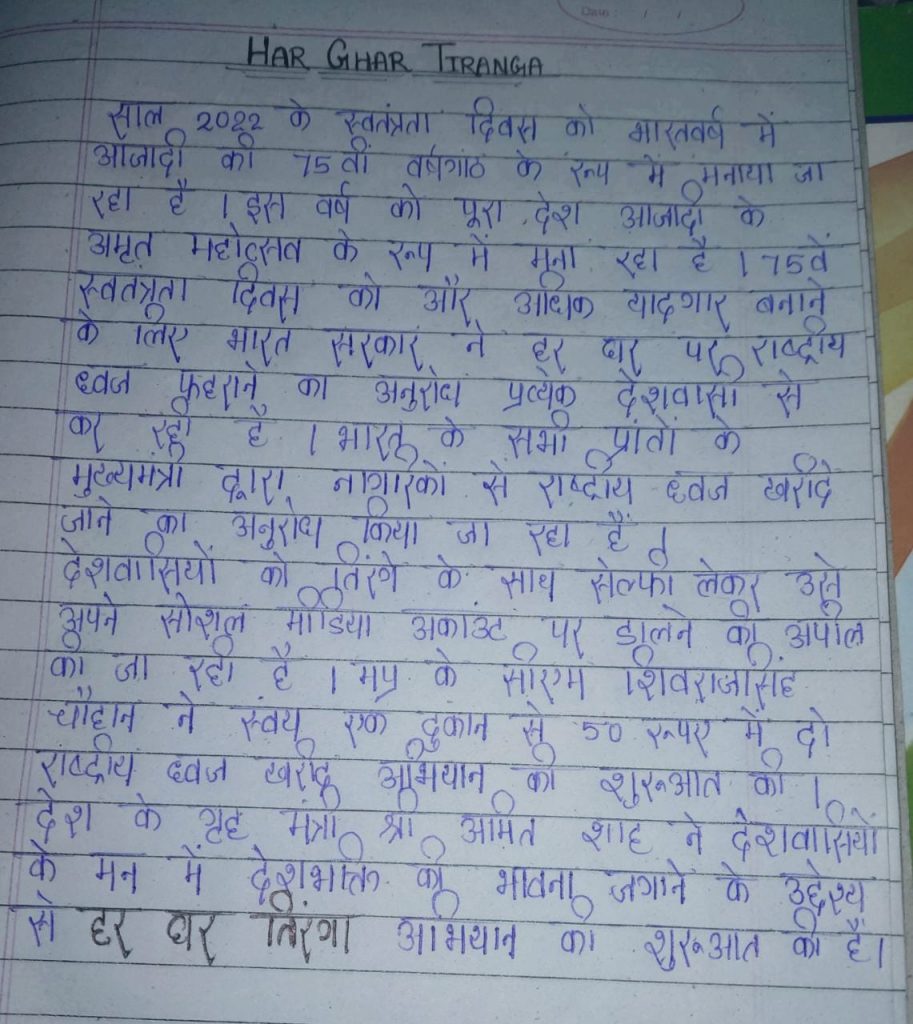 Date : / /
HAR GHAR TIRANGA
साल 2022 के स्वतंत्रता दिवस को भारतवर्ष में
आजादी की 75वीं वर्षगांठ के रूप में मनाया जा
रहा है । इस वर्ष को पूरा देश आजादी के
अमृत महोत्सव के रूप में मना रहा है । 75वें
स्वतंत्रता दिवस को और अधिक यादगार बनाने
के लिए भारत सरकार ने हर घर पर राष्ट्रीय
ध्वज फहराने का अनुरोध प्रत्येक देशवासी से
कर रही है । भारत के सभी प्रांतों के
मुख्यमंत्री द्वारा नागरिकों से राष्ट्रीय ध्वज खरीदे
जाने का अनुरोध किया जा रहा हैं ।
देशवासियों को तिरंगे के साथ सेल्फी लेकर उसे
अपने सोशल मीडिया अकाउंट पर डालने की अपील
की जा रही है । मप्र के सीएम शिवराजसिंह
चौहान ने स्वयं एक दुकान से 50 रूपए में दो
राष्ट्रीय ध्वज खरीद अभियान की शुरूआत की ।
देश के गृह मंत्री श्री अमित शाह ने देशवासियों
के मन में देशभक्ति की भावना जगाने के उद्देश्य
से हर घर तिरंगा अभियान की शुरूआत की हैं।